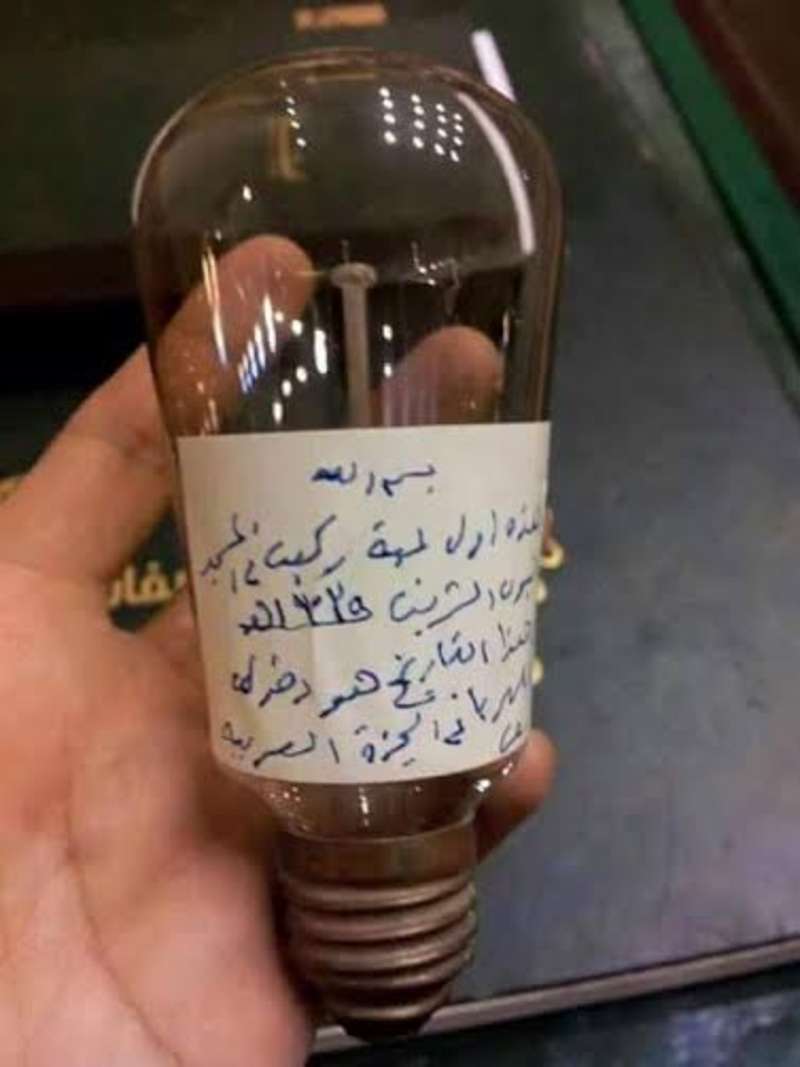 بسم الله
هذه اول لمبة ركبت في المسجد
النبوي الشريف ١٣٢٥هـ
هذا التاريخ هو دخول
الكهرباء في الجزيرة العربية